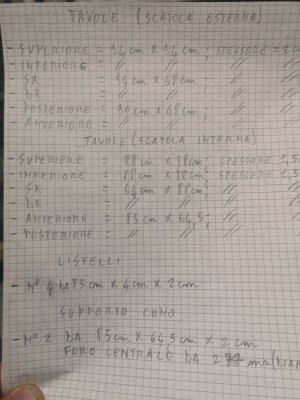 TAVOLE (SCATOLA ESTERNA)
- SUPERIORE = 94 cm x 94 cm; SPESSORE = 2 cm
- INFERIORE = // // // //
- SX = 94 cm x 68 cm; // //
- DX = // // // //
- POSTERIORE = 90 cm x 68 cm; // //
- ANTERIORE = // // // //
TAVOLE (SCATOLA INTERNA)
- SUPERIORE = 88 cm x 88 cm; SPESSORE 1,5
- INFERIORE = 88 cm x 88 cm; SPESSORE 1,5
- SX = 64 cm x 88 cm; // //
- DX = // // // //
- ANTERIORE = 85 cm x 64,5; // //
- POSTERIORE = // // // //
LISTELLI
- N° 4 DA 85 cm x 4 cm x 2 cm
SUPPORTO CONO
- N° 2 DA 85 cm x 64,5 cm x 2 cm
FORO CENTRALE DA 277 mm (DIAM